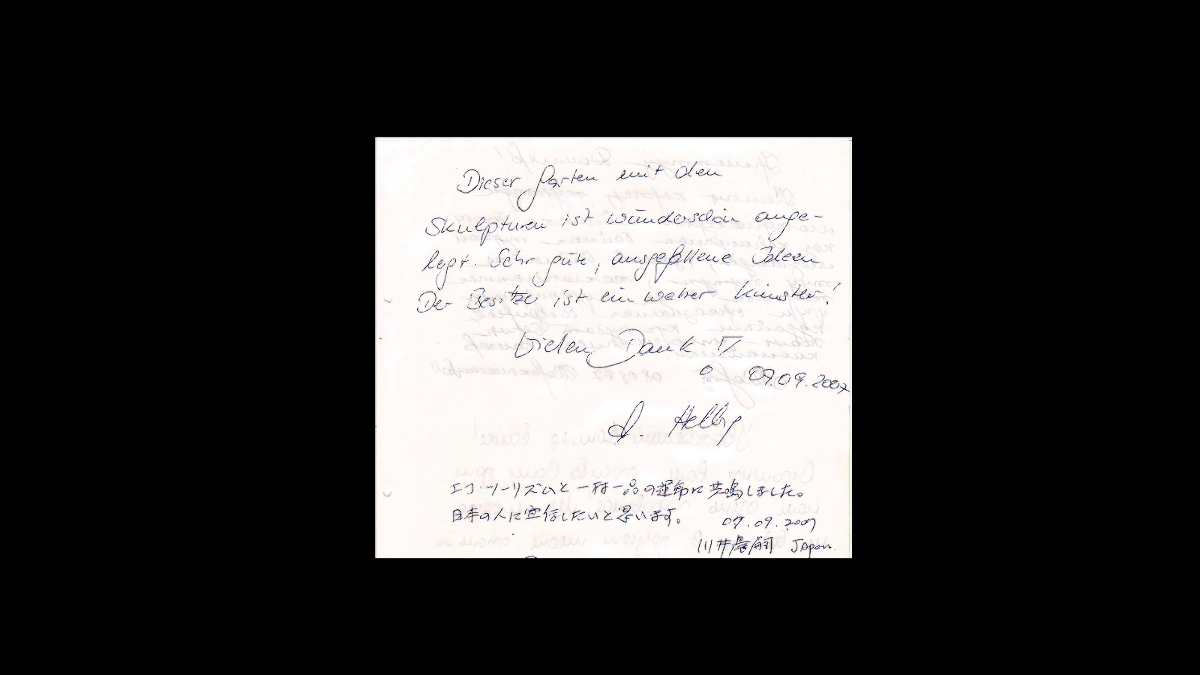 Dieser Garten mit den
Skulpturen ist wunderschön ange-
legt. Sehr gute, ausgefallene Ideen
Der Besitzer ist ein wahrer Künstler!
Vielen Dank
09.09.2007
Helbig
エコツーリズムと一村一品の運動に共鳴しました。
日本の人に宣伝したいと思います。
09.09.2007
川井 Japan